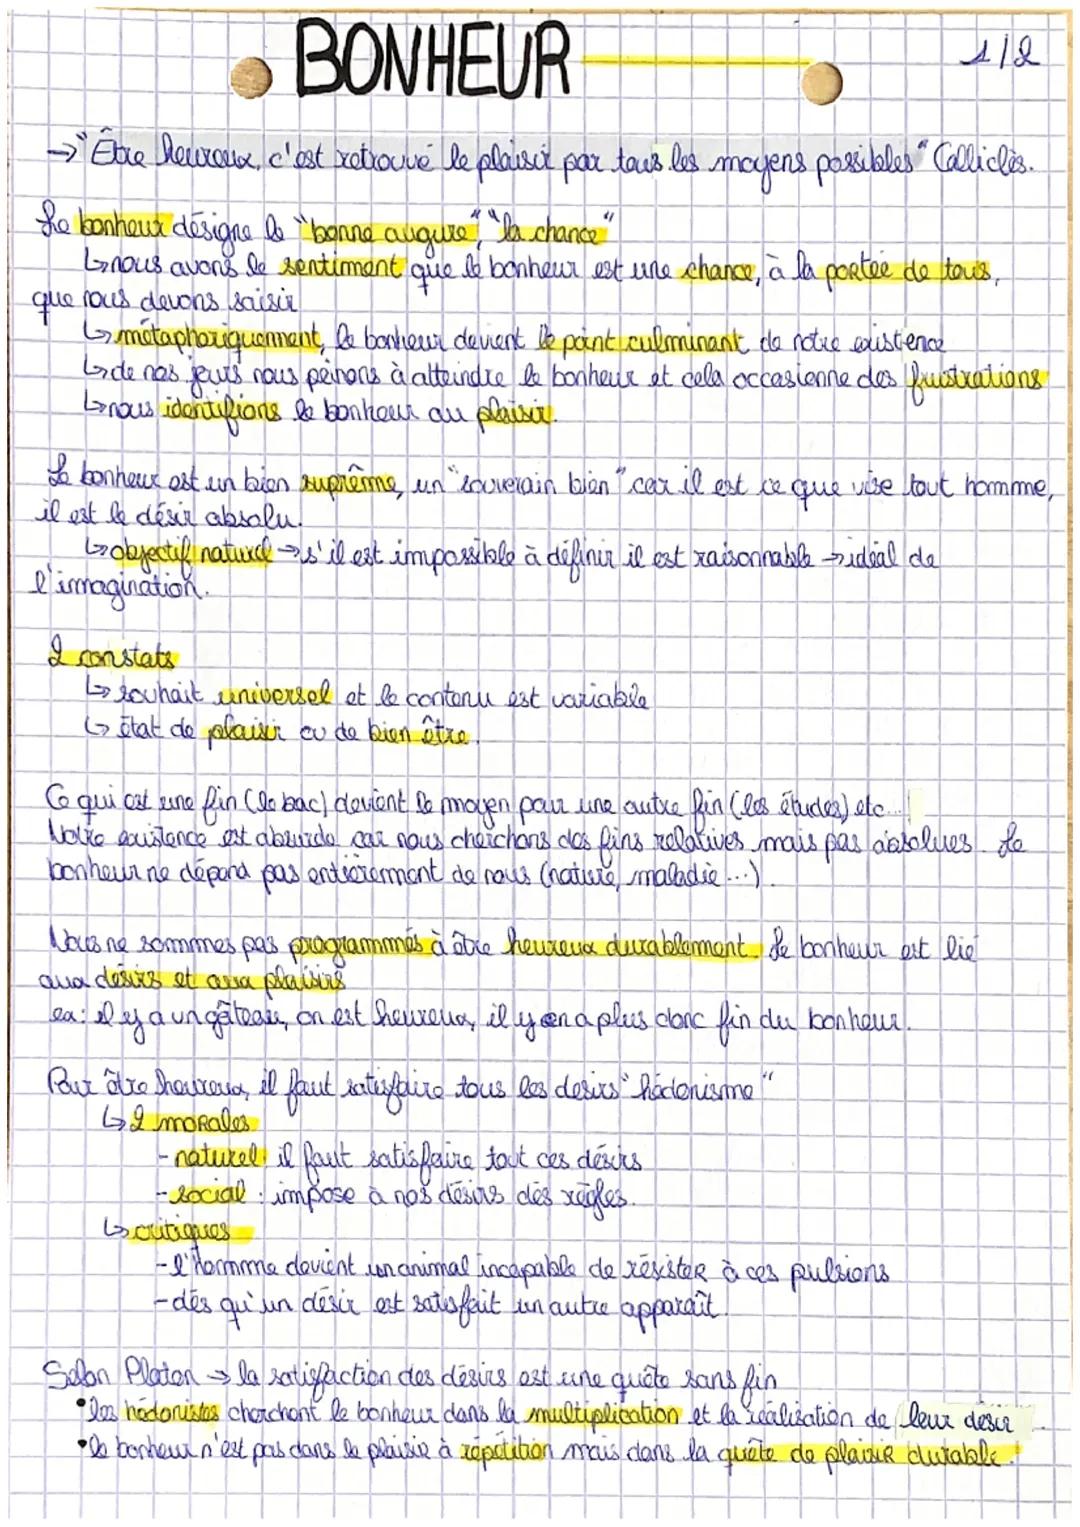 BONHEUR
1/2
→"Être heureux, c'est retrouvé le plaisir par tous les moyens possibles" Calliclès.
Le bonheur désigne le "bonne augure", "la chance"
↳nous avons le sentiment que le bonheur est une chance, à la portée de tous,
que nous devons saisir
↳métaphoriquement, le bonheur devient le point culminant de notre existence
↳de nos jours nous peinons à atteindre le bonheur et cela occasionne des frustrations
↳nous identifions le bonheur au plaisir.
Le bonheur est un bien suprême, un "souverain bien" car il est ce que vise tout homme,
il est le désir absolu.
↳objectif naturel →s'il est impossible à définir il est raisonnable →idéal de
l'imagination.
2 constats
↳ souhait universel et le contenu est variable
↳ état de plaisir ou de bien être.
Ce qui est une fin (le bac) devient le moyen pour une autre fin (les études) etc...
Notre existence est absurde car nous cherchons des fins relatives mais pas absolues. Le
bonheur ne dépend pas entièrement de nous (nature, maladie...).
Nous ne sommes pas programmés à être heureux durablement. Le bonheur est lié
aux désirs et aux plaisirs
ex: il y a un gâteau, on est heureux, il y en a plus donc fin du bonheur.
Pour être heureux, il faut satisfaire tous les desirs "hédonisme"
↳2 morales
-naturel: il faut satisfaire tout ces désirs
-social : impose à nos désirs des règles.
↳critiques
-l'Homme devient un animal incapable de résister à ces pulsions
-dès qu'un désir est satisfait un autre apparaît.
Selon Platon → la satisfaction des désirs est une quête sans fin
•les hédonistes cherchent le bonheur dans la multiplication et la réalisation de leur désir
•le bonheur n'est pas dans le plaisir à répétition mais dans la quête de plaisir durable.